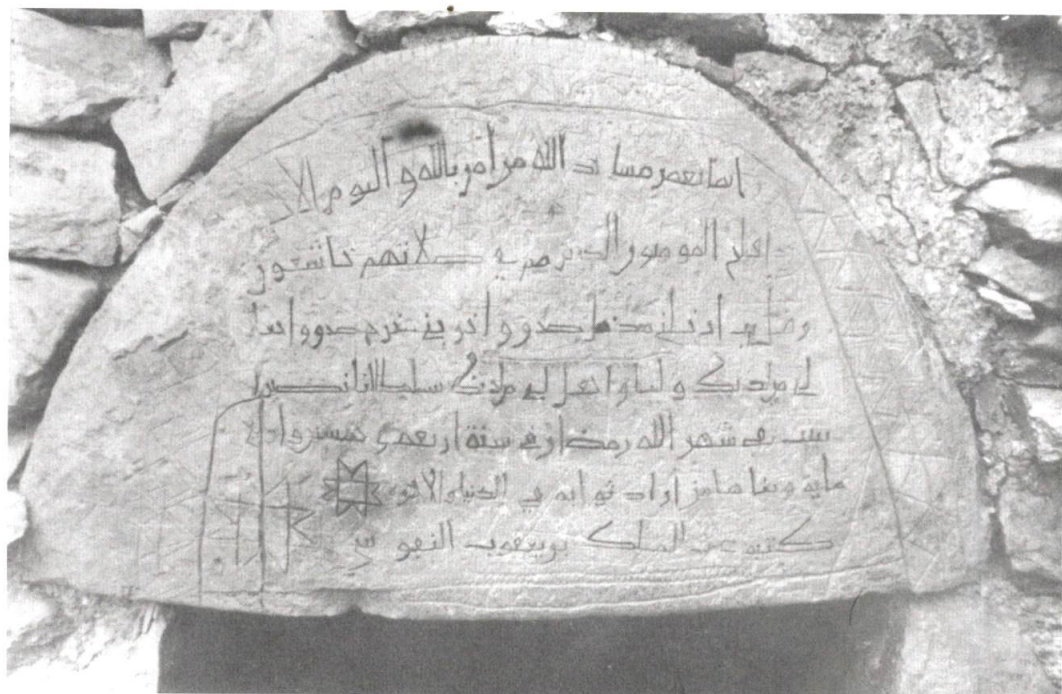 انما يعمر مساجد الله من امن بالله واليوم الا
افلح المومنون الذين هم في صلاتهم خاشعون
وقل رب ادخلني مدخل صدق واخرجني مخرج صدق واجعل
لي من لدنك وليا واجعل لي من لدنك سلطانا نصيرا
بنيت في شهر الله رمضان في سنة اربعة وخمسين
ماية وبناها من اراد ثوابه في الدنيا والاخرة
كتبه عبد الملك بن يعقوب النفوسي